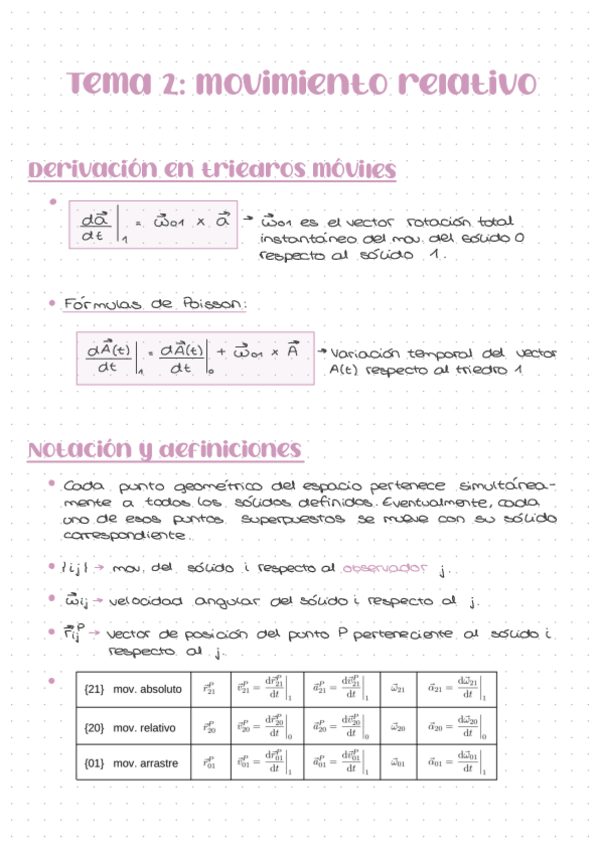 Tema 2: movimiento relativo
Derivación en triedros móviles
• da⃗/dt |₁ = ω⃗₀₁ × a⃗ → ω⃗₀₁ es el vector rotación total
instantáneo del mov. del sólido 0
respecto al sólido 1.
• Fórmulas de Poisson:
dA⃗(t)/dt |₁ = dA⃗(t)/dt |₀ + ω⃗₀₁ × A⃗ → Variación temporal del vector
A(t) respecto al triedro 1
Notación y definiciones
• Cada punto geométrico del espacio pertenece simultánea-
mente a todos los sólidos definidos. Eventualmente, cada
uno de esos puntos superpuestos se mueve con su sólido
correspondiente.
• {ij} → mov. del sólido i respecto al observador j.
• ω⃗ij → velocidad angular del sólido i respecto al j.
• r⃗ijᴾ → vector de posición del punto P perteneciente al sólido i
respecto al j.
• {21} mov. absoluto r⃗₂₁ᴾ v⃗₂₁ᴾ = dr⃗₂₁ᴾ/dt |₁ a⃗₂₁ᴾ = dv⃗₂₁ᴾ/dt |₁ ω⃗₂₁ α⃗₂₁ = dω⃗₂₁/dt |₁
{20} mov. relativo r⃗₂₀ᴾ v⃗₂₀ᴾ = dr⃗₂₀ᴾ/dt |₀ a⃗₂₀ᴾ = dv⃗₂₀ᴾ/dt |₀ ω⃗₂₀ α⃗₂₀ = dω⃗₂₀/dt |₀
{01} mov. arrastre r⃗₀₁ᴾ v⃗₀₁ᴾ = dr⃗₀₁ᴾ/dt |₁ a⃗₀₁ᴾ = dv⃗₀₁ᴾ/dt |₁ ω⃗₀₁ α⃗₀₁ = dω⃗₀₁/dt |₁